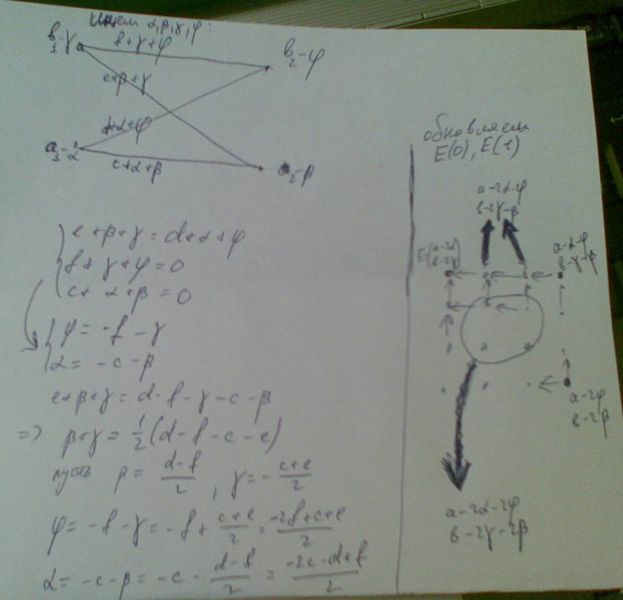 Ищем α, β, γ, φ:
b₃-γ
f+γ+φ
b₂-φ
e+β+γ
d+α+φ
a₃-α
c+α+β
a₂-β
e+β+γ=d+α+φ
f+γ+φ=0
c+α+β=0
φ=-f-γ
α=-c-β
e+β+γ=d-f-γ-c-β
=> β+γ=½(d-f-c-e)
пусть β=(d-f)/2, γ=-(c+e)/2
φ=-f-γ=-f+(c+e)/2=(-2f+c+e)/2
α=-c-β=-c-(d-f)/2=(-2c-d+f)/2
обновляем
E(0), E(1)
a-2α-φ
b-2γ-β
a-α-φ
b-γ-β
a-2φ
b-2β
a-2α-2φ
b-2γ-2β